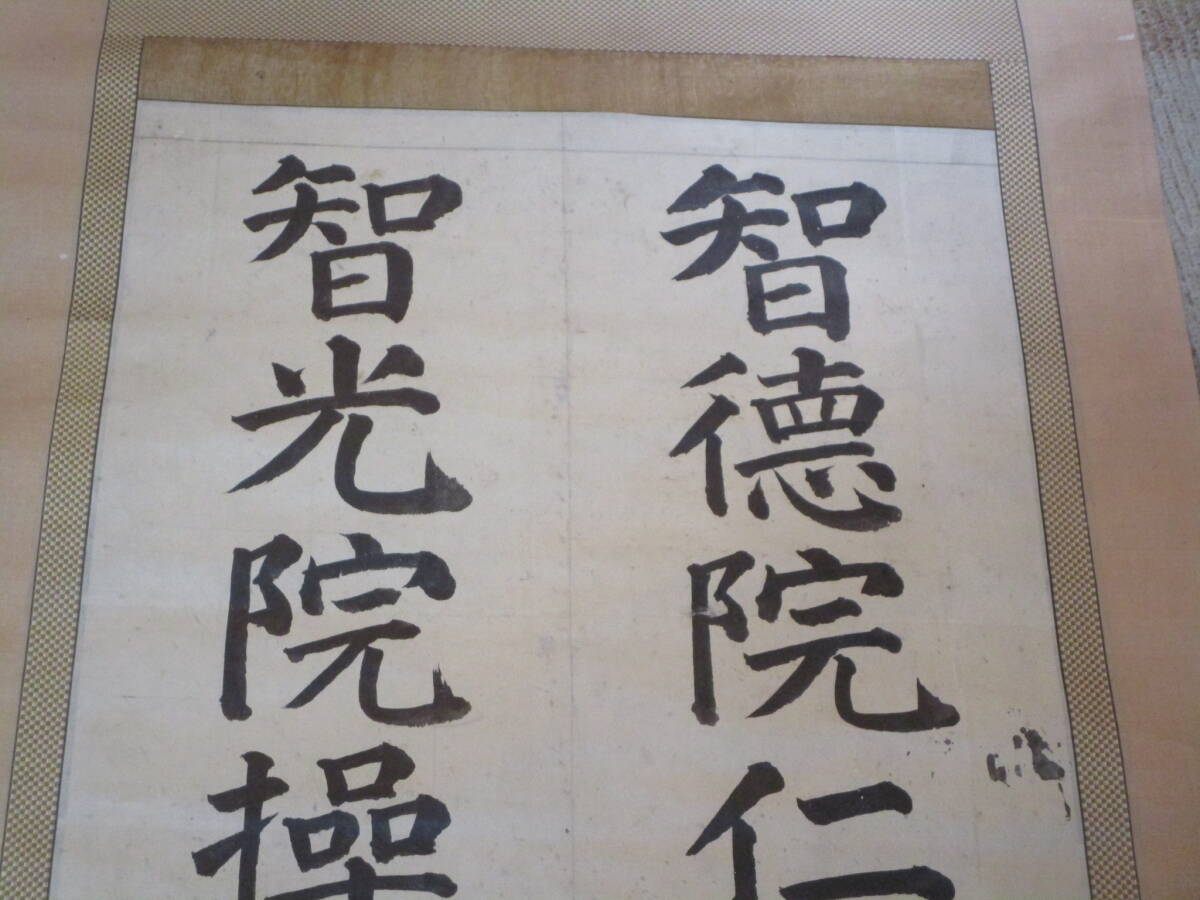 智德院仁
智光院操